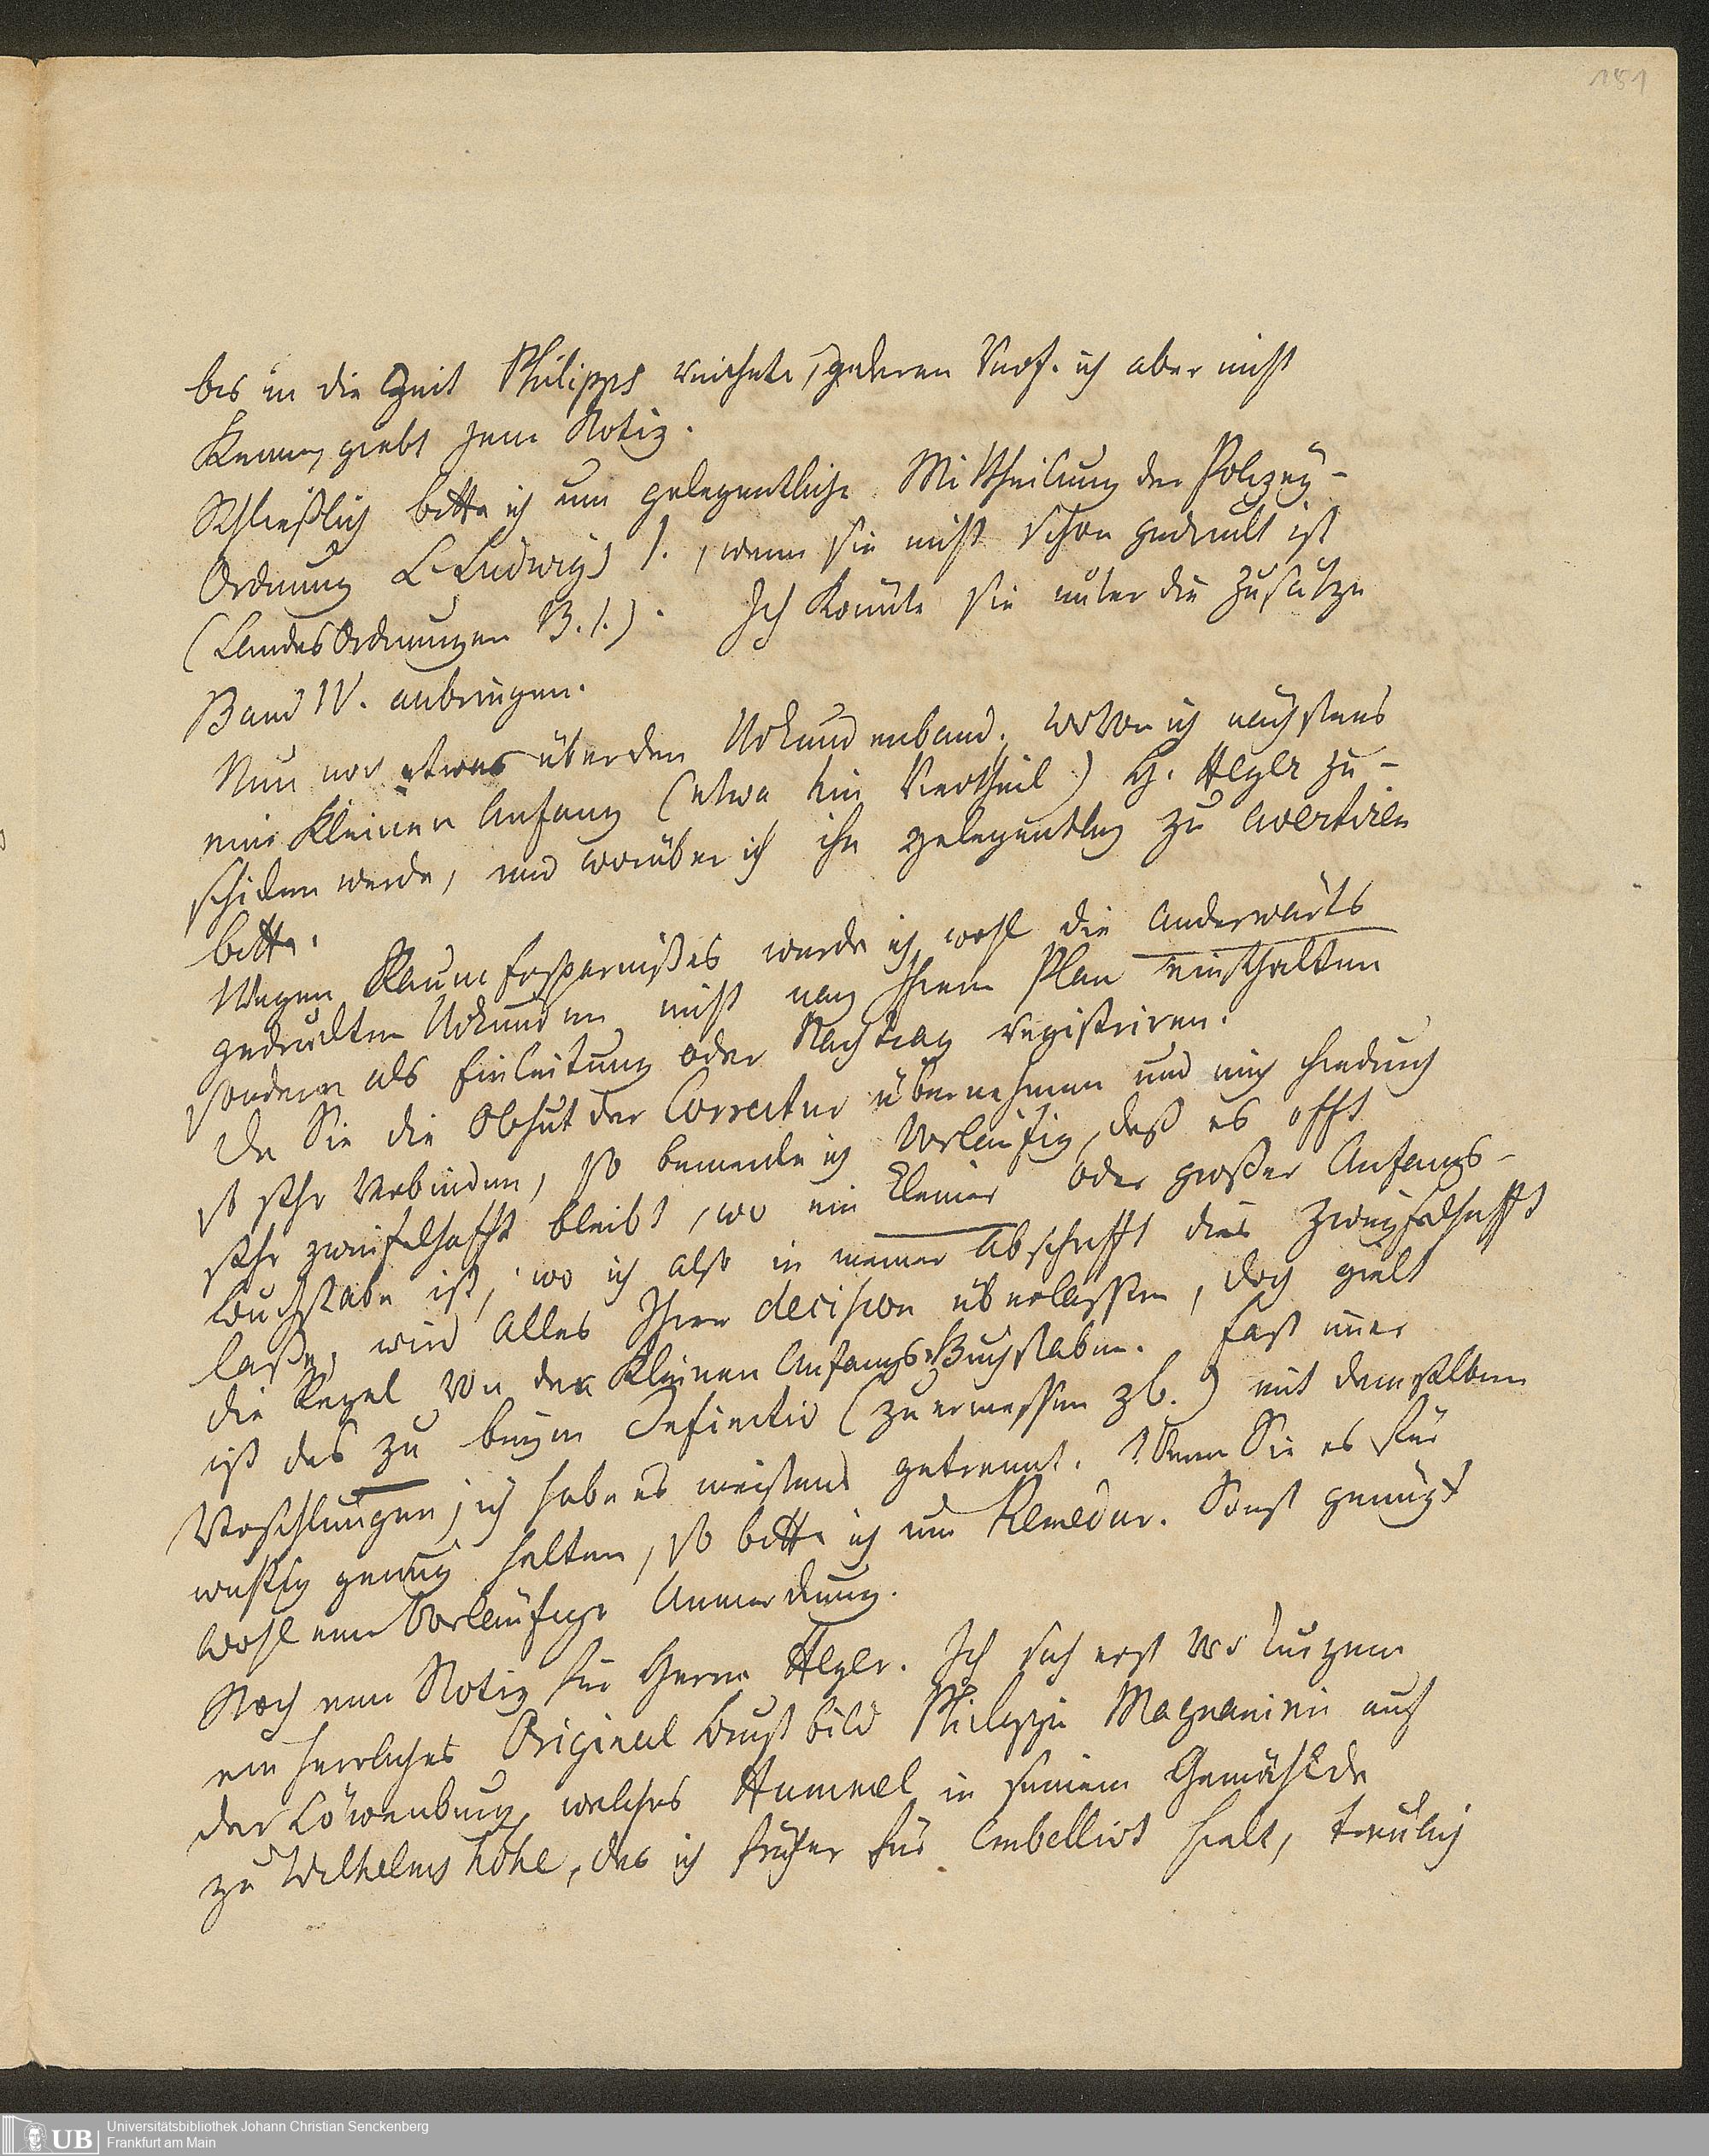 151
bis in die Zeit Philipps reichete, deren Verf. ich aber nicht
kenne, giebt jene Notiz.
Schließlich bitte ich um gelegentliche Mittheilung der Polizey-
Ordnung L. Ludwigs I., wenn sie nicht schon gedruckt ist
(LandesOrdnungen B. I.). Ich könnte sie unter die Zusätze
Band IV. anbringen.
Nun noch etwas über den Urkundenband, wovon ich nächstens
einen kleinen Anfang (etwa ein Viertheil) H. Heyer zu-
schicken werde, und worüber ich ihn gelegentlich zu avertiren
bitte.
Wegen Raumersparnißes werde ich wohl die anderwärts
gedruckten Urkunden nicht nach Ihrem Plan einschalten
sondern als Einleitung oder Nachtrag registriren.
Da Sie die Obhut der Correctur übernehmen und mich hiedurch
so sehr verbinden, so bemerke ich vorläufig, daß es offt
sehr zweifelhafft bleibt, wo ein kleiner oder großer Anfangs-
buchstabe ist, wo ich also in meiner Abschrifft dies zweyfelhafft
laße, wird alles Ihrer decision überlassen, doch gielt
die Regel von den kleinen Anfangs-Buchstaben. Fast immer
ist das zu beym Infinitiv (zuermessen zb.) mit demselben
verschlungen; ich habe es meistens getrennt. Wenn Sie es für
wichtig genug halten, so bitte ich um Remedur. Sonst genügt
wohl eine vorläufige Anmerckung.
Noch eine Notiz für Herrn Heyer. Ich sah erst vor kurzem
ein herrliches Original Brustbild Philippi Magnanimi auf
der Löwenburg, welches Hummel in seinem Gemählde
zu Wilhelmshöhe, das ich früher für embellirt hielt, treulich
Universitätsbibliothek Johann Christian Senckenberg
Frankfurt am Main
UB